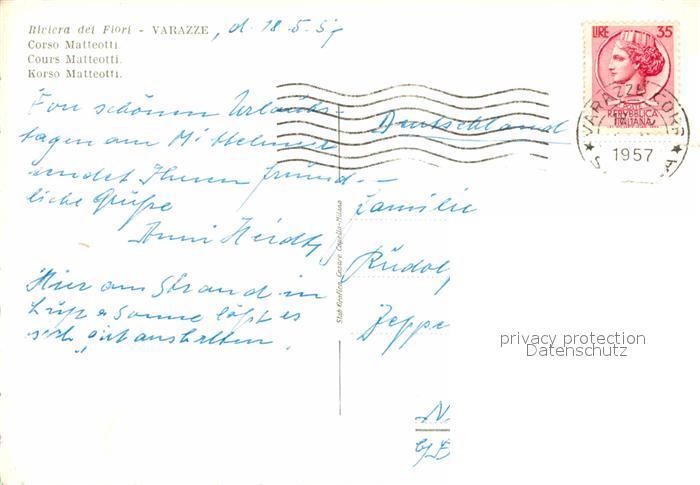 Riviera dei Fiori - VARAZZE, d. 18.5.57
Corso Matteotti.
Cours Matteotti.
Korso Matteotti.
Von schönen Urlaubs-
tagen am Mittelmeer
sendet Ihnen freund-
liche Grüße
Anni
Hier am Strand in
Luft u Sonne läßt es
sich gut aushalten.
LIRE 35
POSTE
REPVBBLICA
ITALIANA
VARAZZE
1957
Deutschland
Familie
Rudolf
Zeppe
Stab. Cesare Capello - Milano
privacy protection
Datenschutz